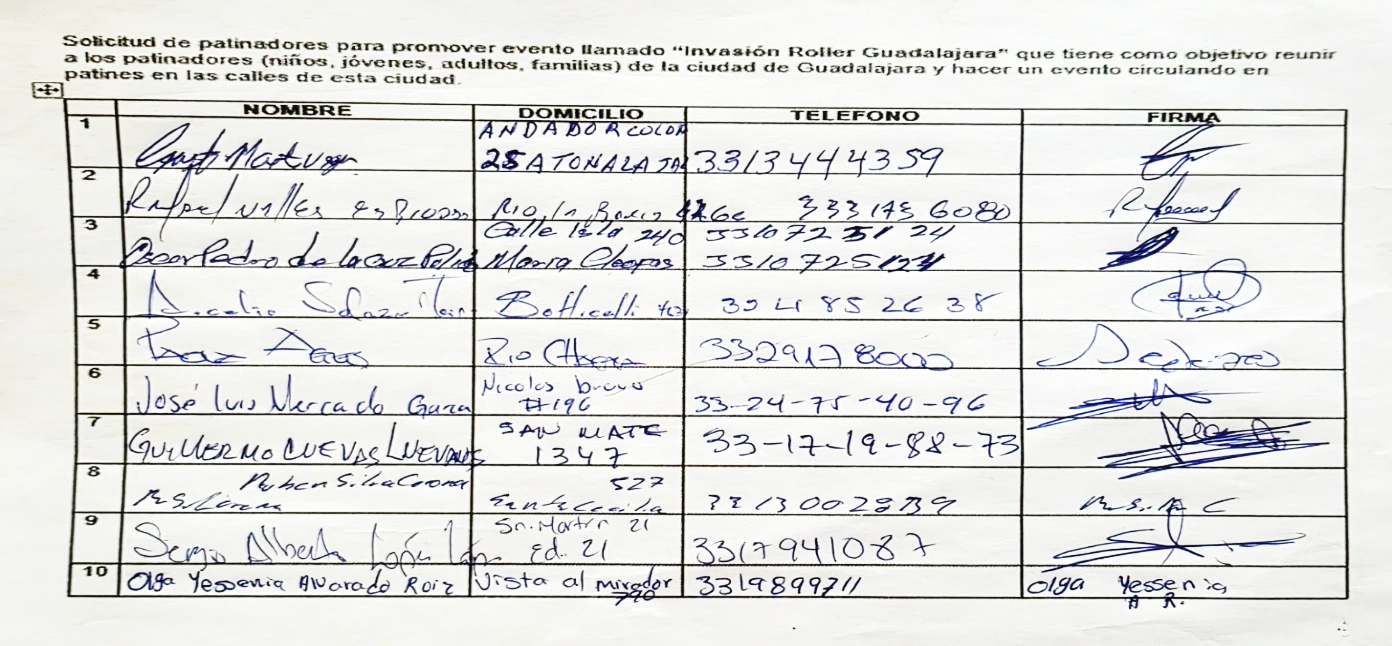 Solicitud de patinadores para promover evento llamado “Invasión Roller Guadalajara” que tiene como objetivo reunir
a los patinadores (niños, jóvenes, adultos, familias) de la ciudad de Guadalajara y hacer un evento circulando en
patines en las calles de esta ciudad.
NOMBRE DOMICILIO TELEFONO FIRMA
1 ANDADOR COLON
25 A TONALA JAL 3313444359
2 Rafael valles Rio la 333 175 6080
3 Calle Isla 240
Oscar Pedro de la cruz Maria Cleofas 3310725124
4 Botticelli 33 41 85 26 38
5 Rio 3329178000
6 Nicolas bravo
José luis Mercado Garza #196 33-24-75-40-96
7 SAN MATE
GUILLERMO CUEVAS LUEVANOS 1347 33-17-19-88-73
8 Ruben Silva Corona 527
Santa Cecilia
9 Sn. Martin 21
Sergio Alberto López Ed. 21 3317941087
10 Olga Yessenia Alvarado Roiz Vista al mirador 3319899711 Olga Yessenia
790 A R.